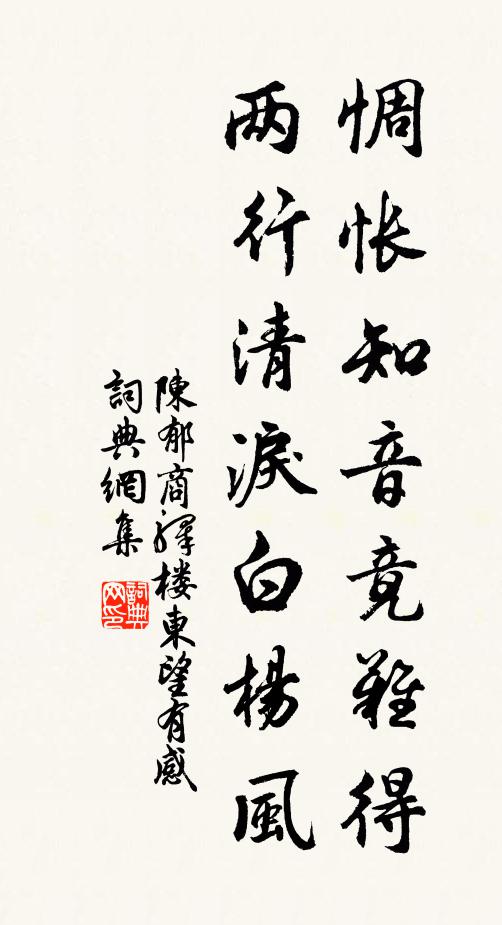 惆悵知音竟難得
两行清淚白楊風
陳郁商驛楼東望有感
詞典網集
詞典网印